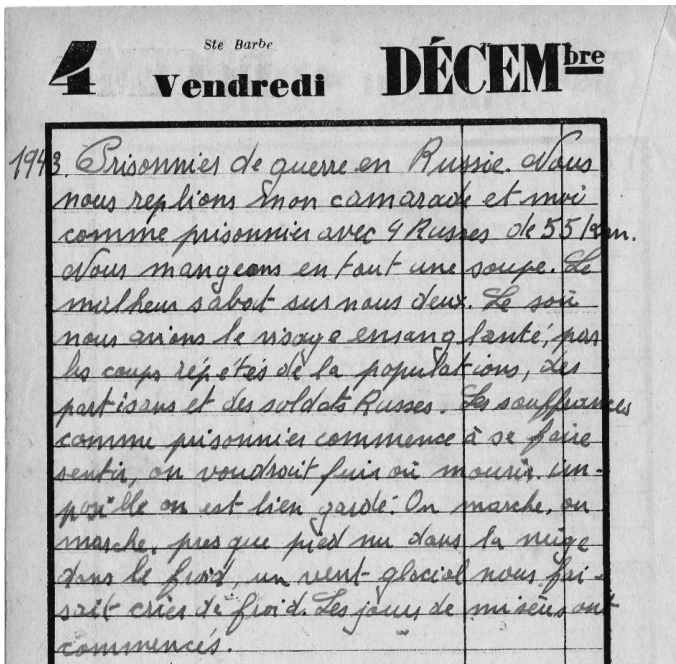 4
Ste Barbe
Vendredi
DÉCEMbre
1943. Prisonnier de guerre en Russie. Nous
nous replions mon camarade et moi
comme prisonnier avec 4 Russes de 55 km.
Nous mangeons en tout une soupe. Le
malheur s'abat sur nous deux. Le soir
nous avions le visage ensanglanté, par
les coups répétés de la populations, des
partisans et des soldats Russes. Les souffrances
comme prisonnier commence à se faire
sentir, on voudrait fuir ou mourir. im-
possible on est bien gardé. On marche, on
marche, presque pied nu dans la neige
dans le froid, un vent glacial nous fai-
sait crier de froid. Les jours de misère ont
commencés.